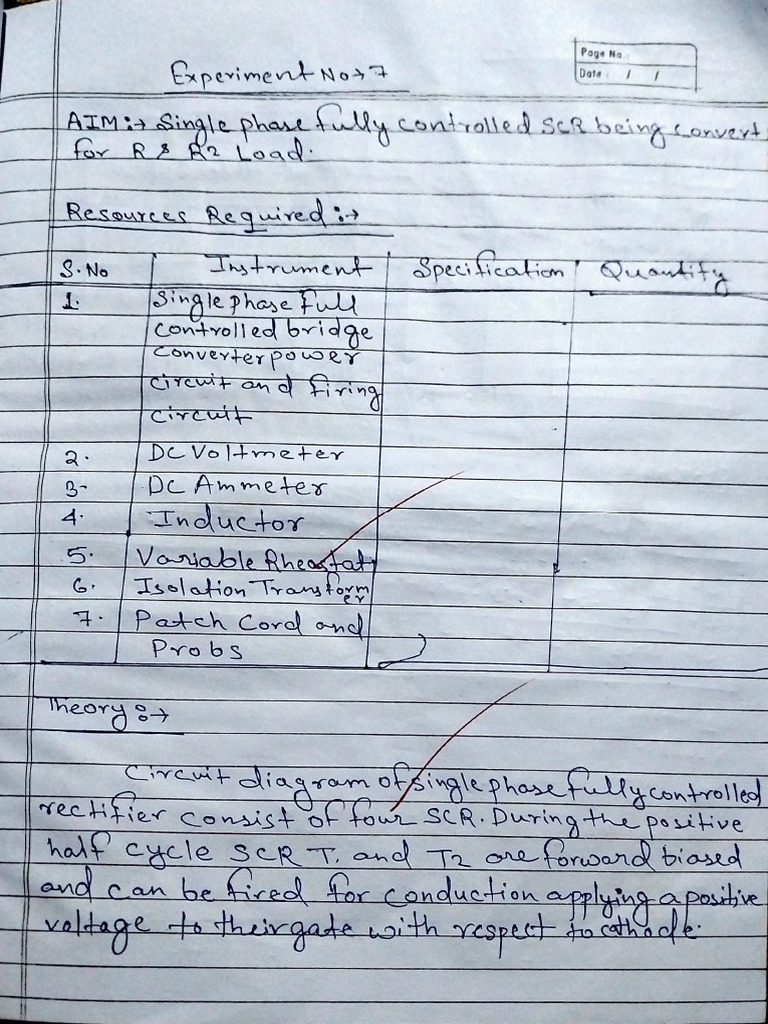 Page No.
Date: / /
Experiment No→7
AIM:→ Single phase fully controlled SCR being convert
for R & R2 Load.
Resources Required :→
S.No Instrument Specification Quantity
1. Single phase Full
controlled bridge
Converter power
circuit and firing
circuit
2. DC Voltmeter
3- DC Ammeter
4. Inductor
5. Variable Rheostat
6. Isolation Transform
er
7. Patch Cord and
Probs
Theory :→
Circuit diagram of single phase fully controlled
rectifier consist of four SCR. During the positive
half cycle SCR T1 and T2 are forward biased
and can be fired for conduction applying a positive
voltage to their gate with respect to cathode.